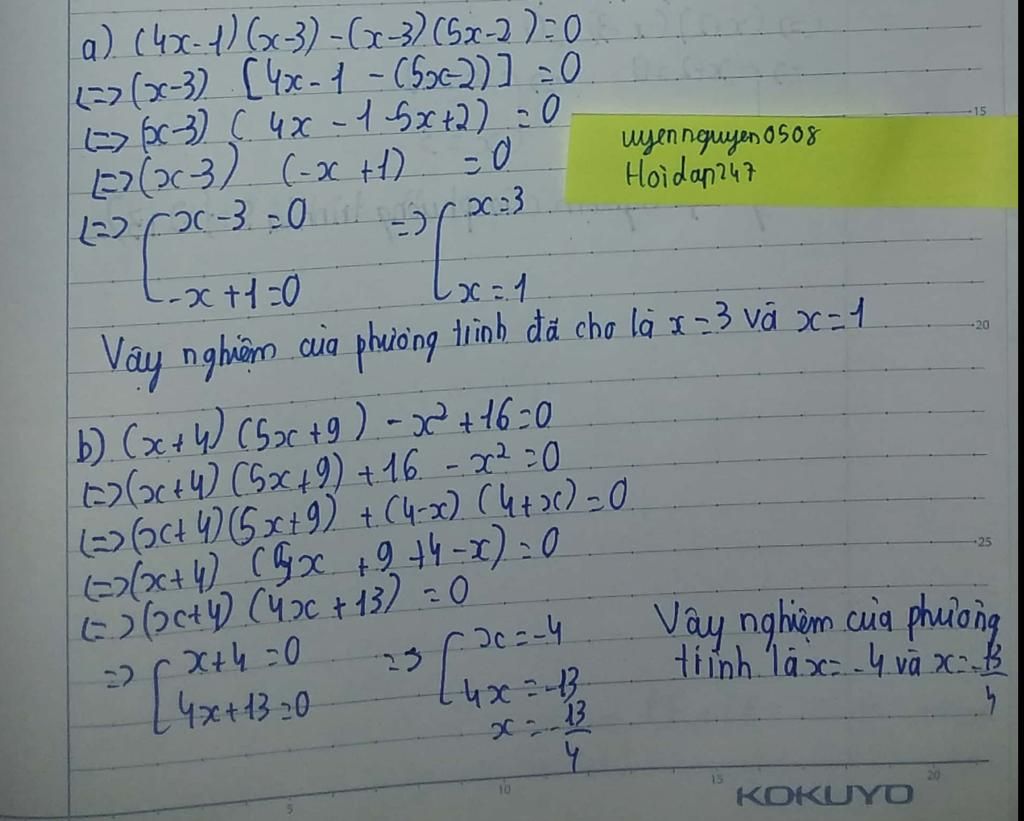 a) (4x-1)(x-3)-(x-3)(5x-2)=0
<=>(x-3) [4x-1-(5x-2)] =0
<=>(x-3) (4x-1-5x+2) =0
<=>(x-3) (-x+1) =0
<=>[x-3=0 =>[x=3
-x+1=0 x=1
Vậy nghiệm của phương trình đã cho là x=3 và x=1
uyennguyen0508
Hoidap247
b) (x+4)(5x+9)-x²+16=0
<=>(x+4)(5x+9)+16-x²=0
<=>(x+4)(5x+9)+(4-x)(4+x)=0
<=>(x+4) (5x+9+4-x)=0
<=>(x+4)(4x+13)=0
=>[x+4=0 =>[x=-4
4x+13=0 4x=-13
x=-13/4
Vậy nghiệm của phương
trình là x=-4 và x=-13/4
15
20
25
5 10 15 20
KOKUYO